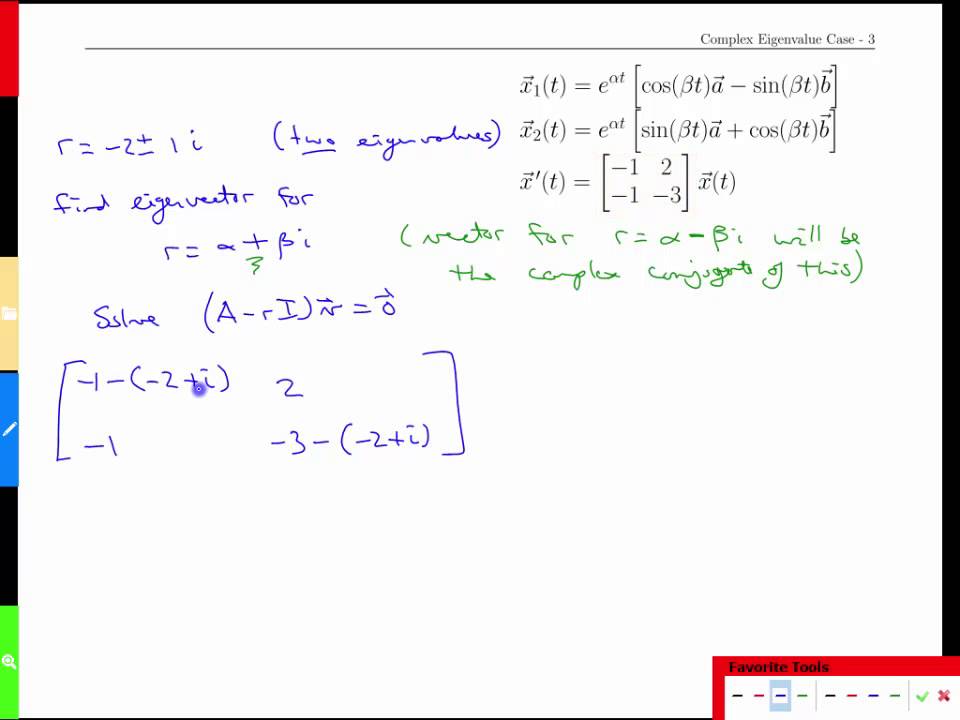 Complex Eigenvalue Case - 3
x⃗₁(t) = e^{αt} [cos(βt)a⃗ − sin(βt)b⃗]
r = -2 ± 1 i (two eigenvalues)
x⃗₂(t) = e^{αt} [sin(βt)a⃗ + cos(βt)b⃗]
x⃗ ′(t) = [−1 2; −1 −3] x⃗(t)
find eigenvector for
r = α + β i
(vector for r = α - β i will be
the complex conjugate of this)
Solve (A - r I) v⃗ = 0⃗
-1 - (-2+i) 2
-1 -3 - (-2+i)
Favorite Tools